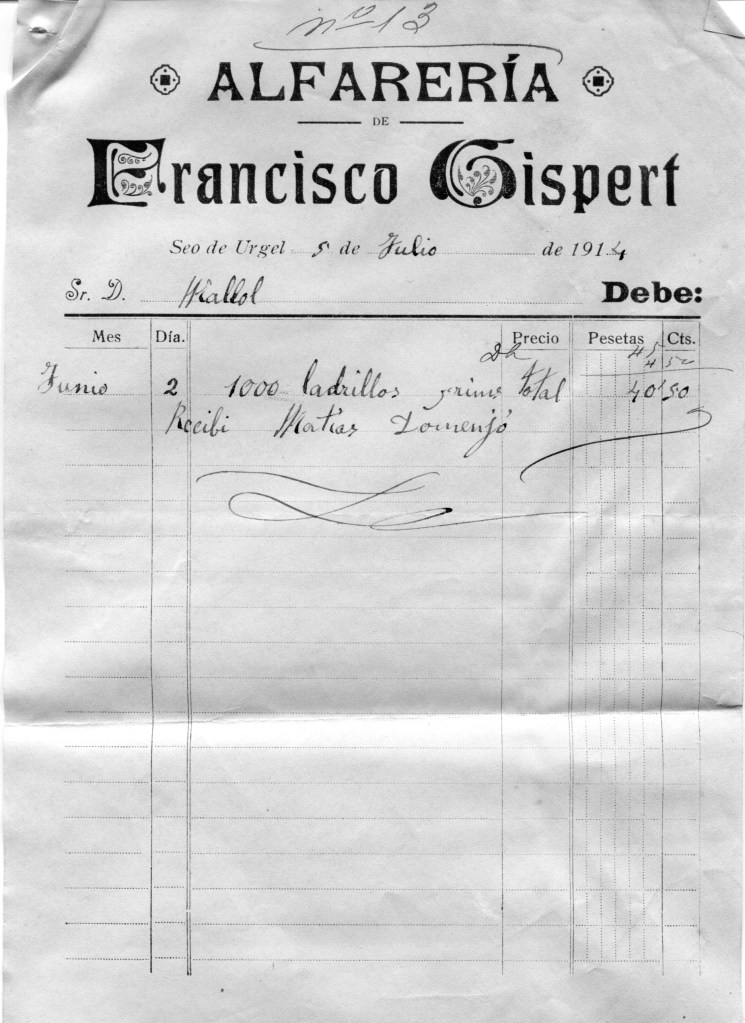 nº 13
ALFARERÍA
DE
Francisco Gispert
Seo de Urgel 5 de Julio de 1914
Sr. D. Mallol Debe:
Mes Día. Precio Pesetas Cts.
45
Dh 4 50
Junio 2 1000 ladrillos prims total 40'50
Recibi Matias Domenjó